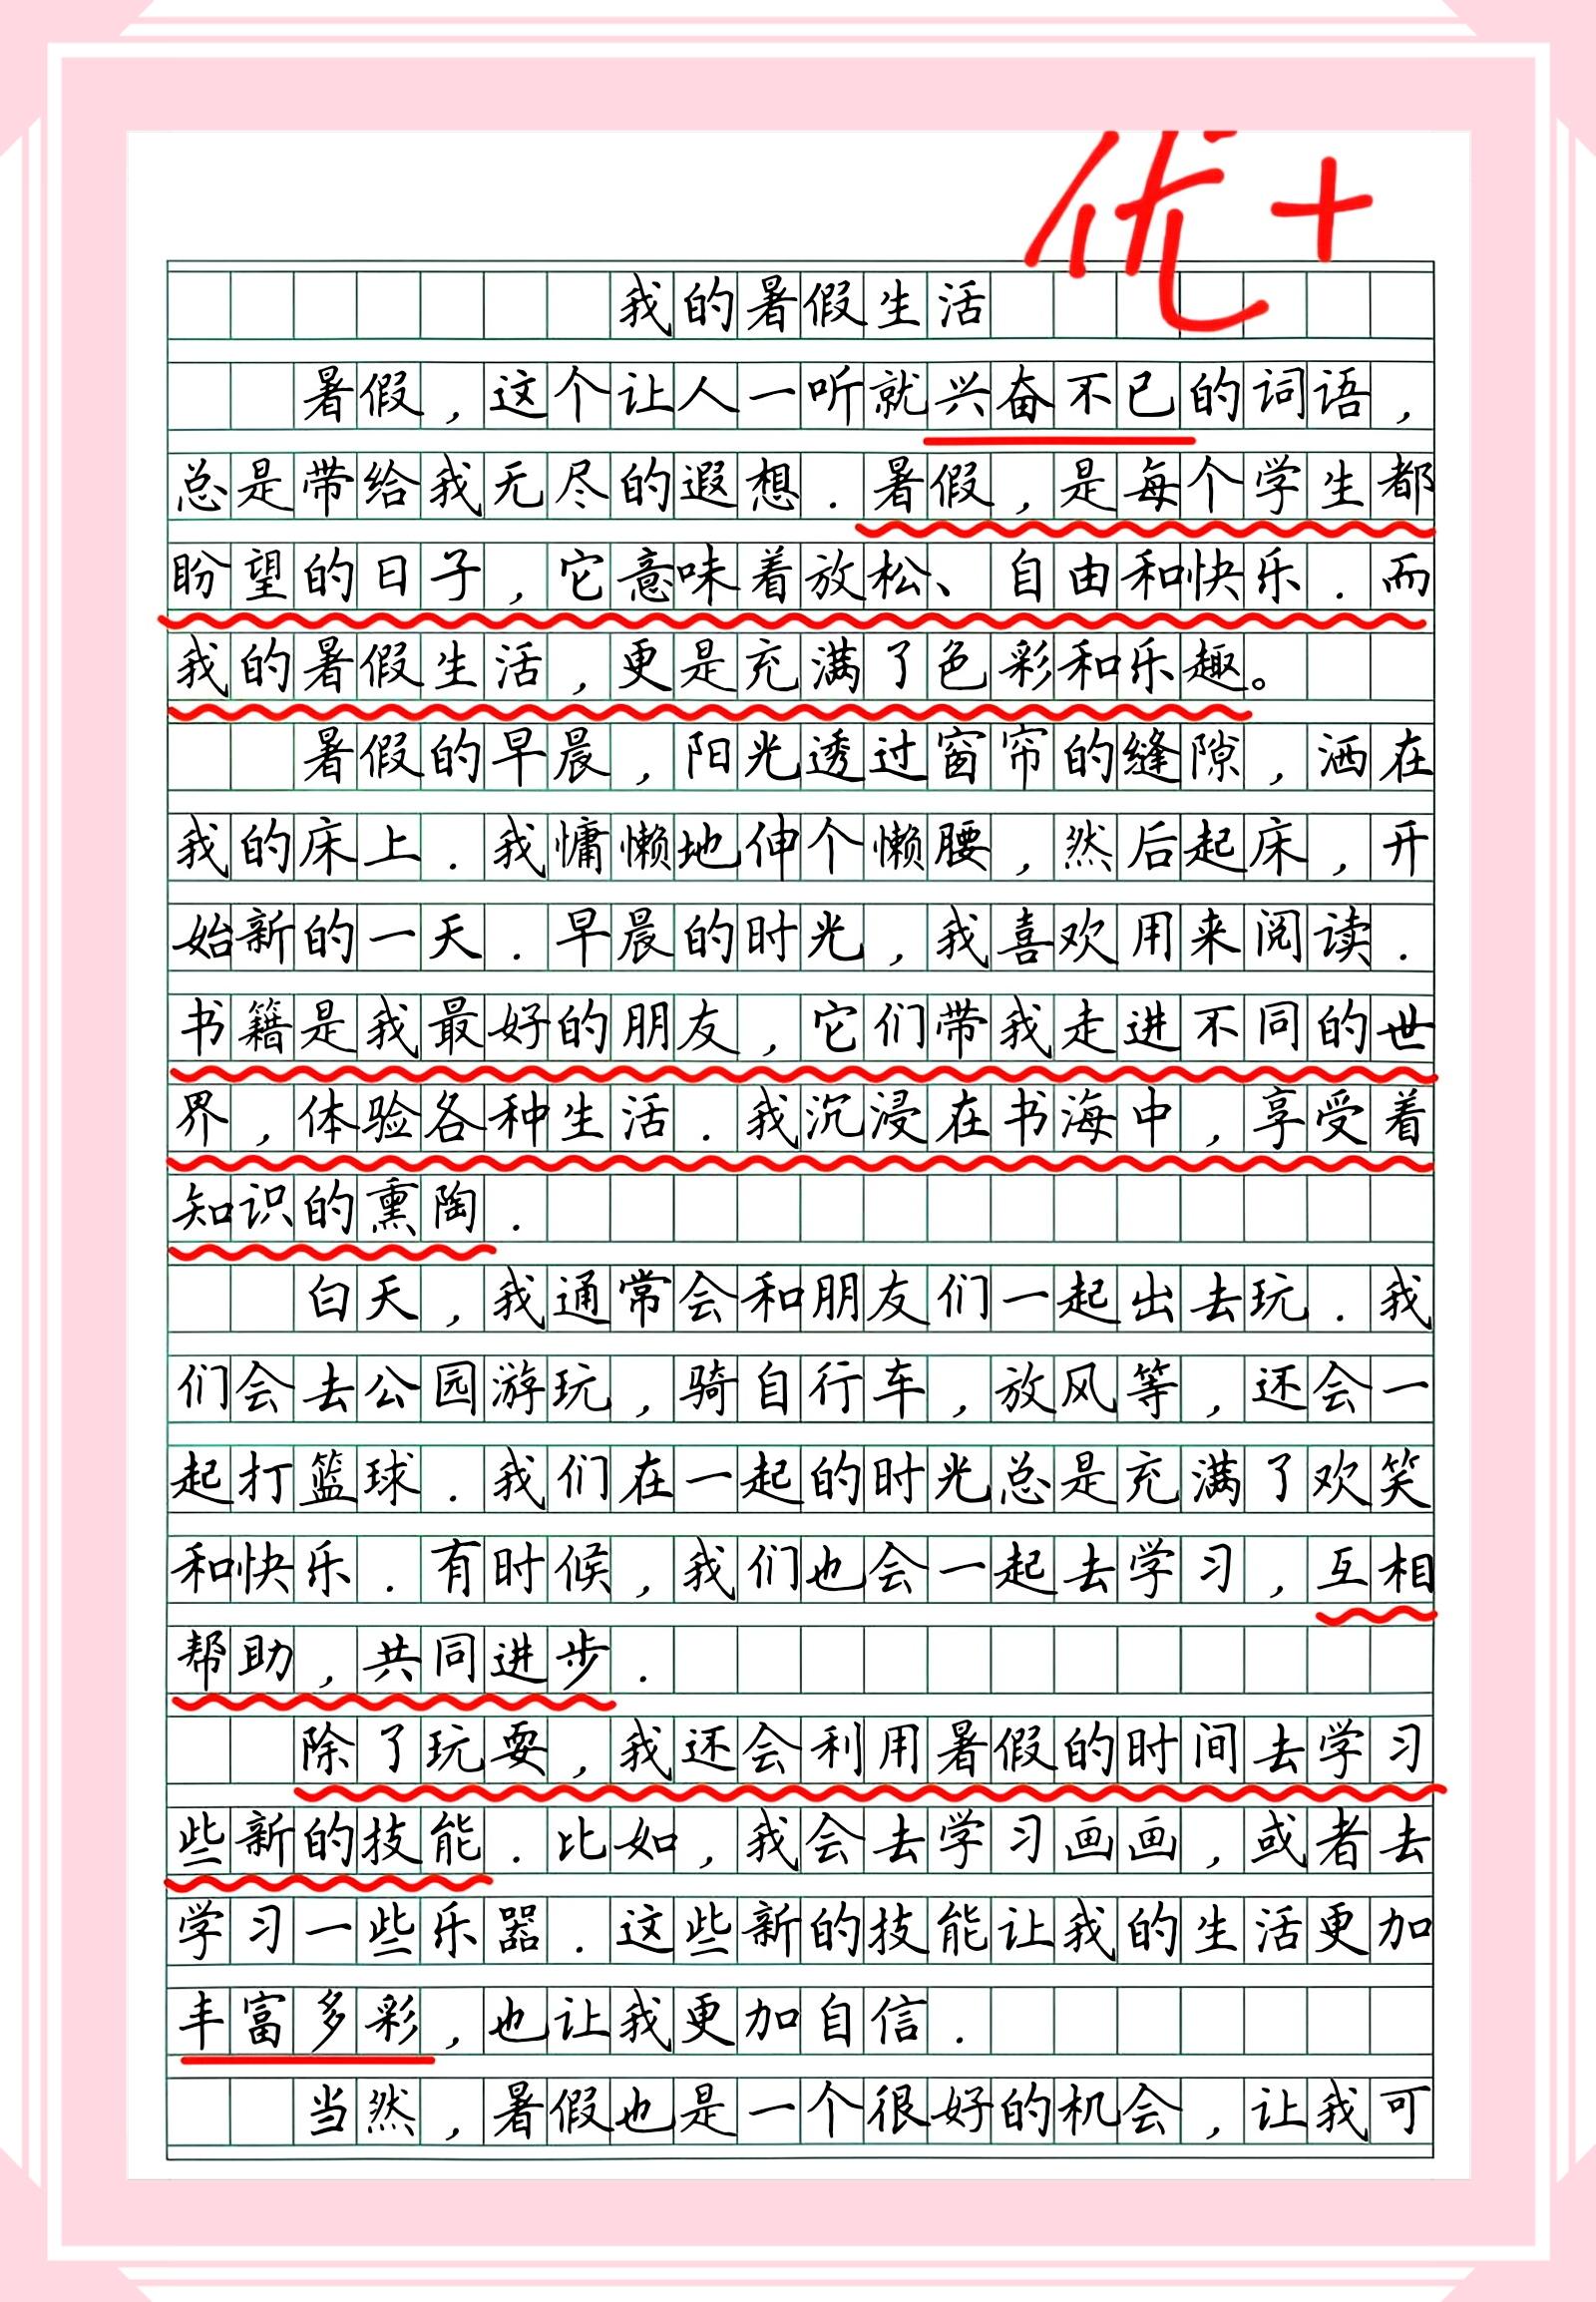 优+
我的暑假生活
暑假,这个让人一听就兴奋不已的词语,
总是带给我无尽的遐想.暑假,是每个学生都
盼望的日子,它意味着放松、自由和快乐.而
我的暑假生活,更是充满了色彩和乐趣。
暑假的早晨,阳光透过窗帘的缝隙,洒在
我的床上.我慵懒地伸个懒腰,然后起床,开
始新的一天.早晨的时光,我喜欢用来阅读.
书籍是我最好的朋友,它们带我走进不同的世
界,体验各种生活.我沉浸在书海中,享受着
知识的熏陶.
白天,我通常会和朋友们一起出去玩.我
们会去公园游玩,骑自行车,放风等,还会一
起打篮球.我们在一起的时光总是充满了欢笑
和快乐.有时候,我们也会一起去学习,互相
帮助,共同进步.
除了玩耍,我还会利用暑假的时间去学习
些新的技能.比如,我会去学习画画,或者去
学习一些乐器.这些新的技能让我的生活更加
丰富多彩,也让我更加自信.
当然,暑假也是一个很好的机会,让我可